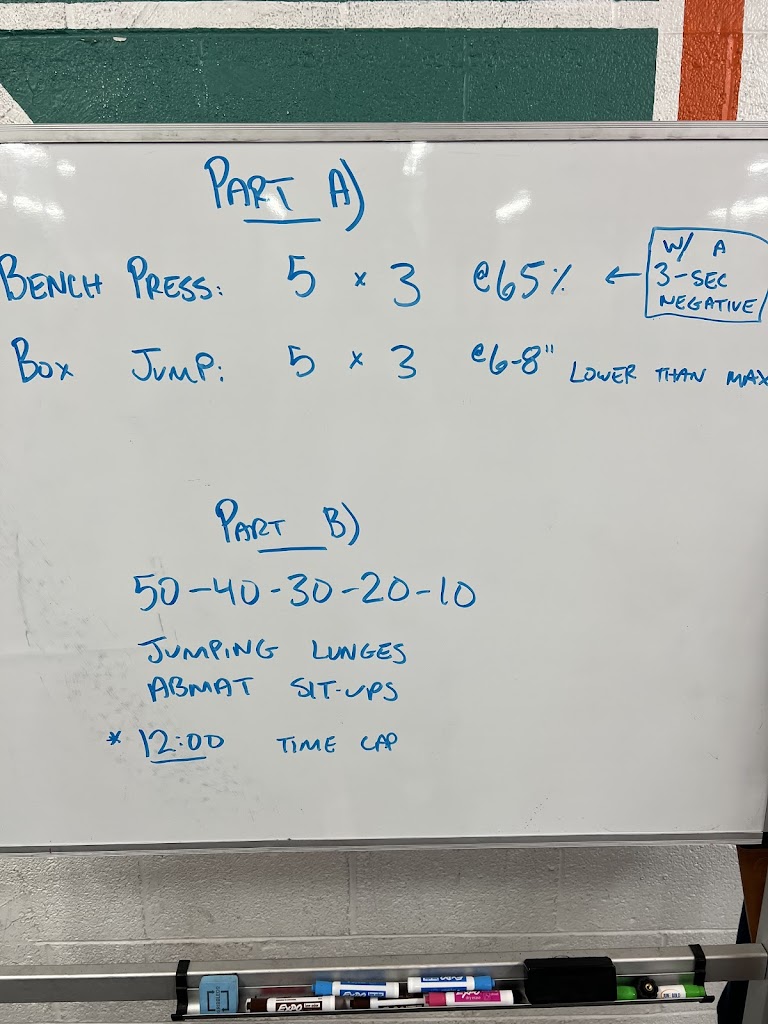 PART A)
BENCH PRESS: 5 × 3 @65% ← W/ A 3-SEC NEGATIVE
BOX JUMP: 5 × 3 @6-8" LOWER THAN MAX
PART B)
50-40-30-20-10
JUMPING LUNGES
ABMAT SIT-UPS
* 12:00 TIME CAP
EXPO
EXPO